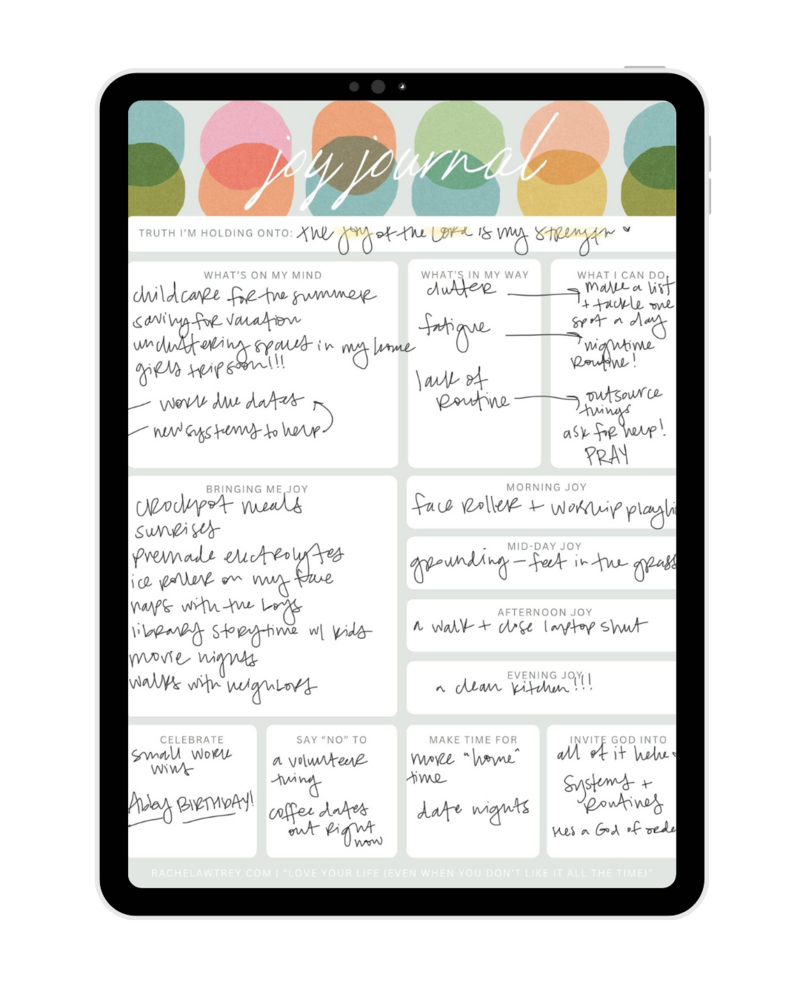 joy journal
TRUTH I'M HOLDING ONTO: the joy of the Lord is my strength
WHAT'S ON MY MIND
childcare for the summer
saving for vacation
uncluttering spaces in my home
girls trip soon!!!
— work due dates
— new systems to help
WHAT'S IN MY WAY
clutter
fatigue
lack of
routine
WHAT I CAN DO
make a list
+ tackle one
spot a day
nightime
routine!
outsource
things
ask for help!
PRAY
BRINGING ME JOY
crockpot meals
sunrises
premade electrolytes
ice roller on my face
naps with the boys
library storytime w/ kids
movie nights
walks with neighbors
MORNING JOY
face roller + worship playli
MID-DAY JOY
grounding - feet in the grass
AFTERNOON JOY
a walk + close laptop shut
EVENING JOY
a clean kitchen!!!
CELEBRATE
small work
wins
Abby BIRTHDAY!
SAY "NO" TO
a volunteer
thing
coffee dates
out right
now
MAKE TIME FOR
more "home"
time
date nights
INVITE GOD INTO
all of it hehe
Systems +
Routines
Hes a God of orde
RACHELAWTREY.COM | "LOVE YOUR LIFE (EVEN WHEN YOU DON'T LIKE IT ALL THE TIME)"